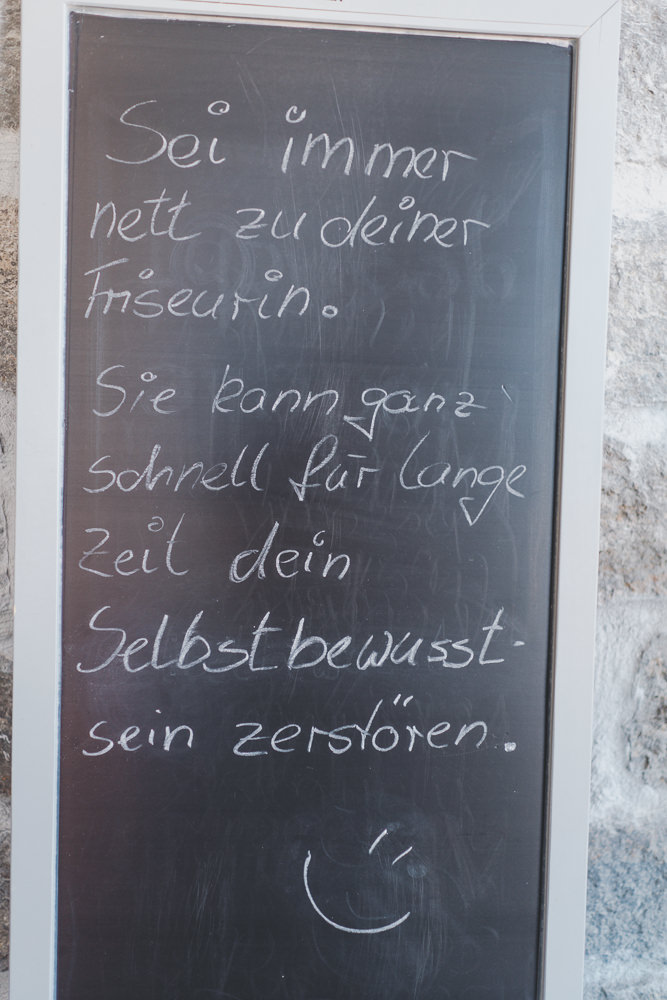 Sei immer
nett zu deiner
Friseurin.
Sie kann ganz
schnell für lange
Zeit dein
Selbstbewusst-
sein zerstören.